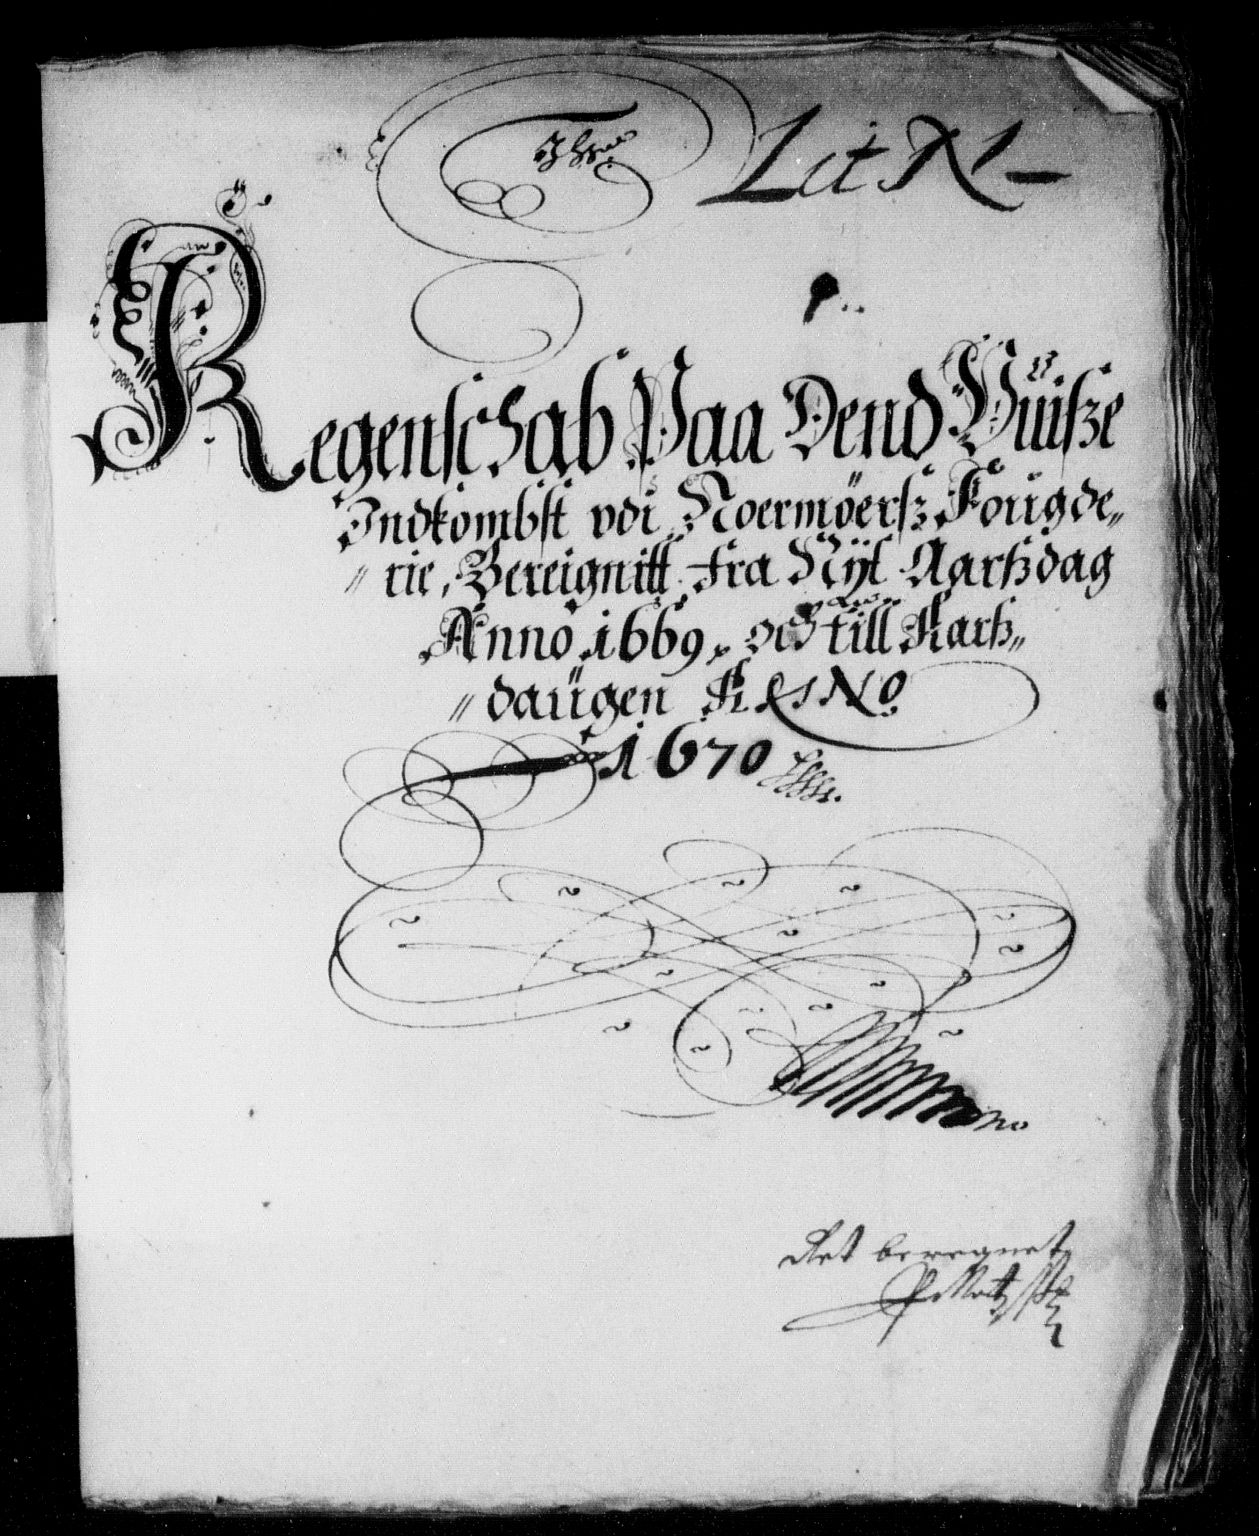 Lit N
Regenschab Paa Dend Wuisze
Indkombst vdi Noermöersz Fougde„
„rie, Bereignitt fra Nyt Aarszdag
Anno 1669, och till Aarsz„
„daugen A&sNo
1670
Ret beregnet